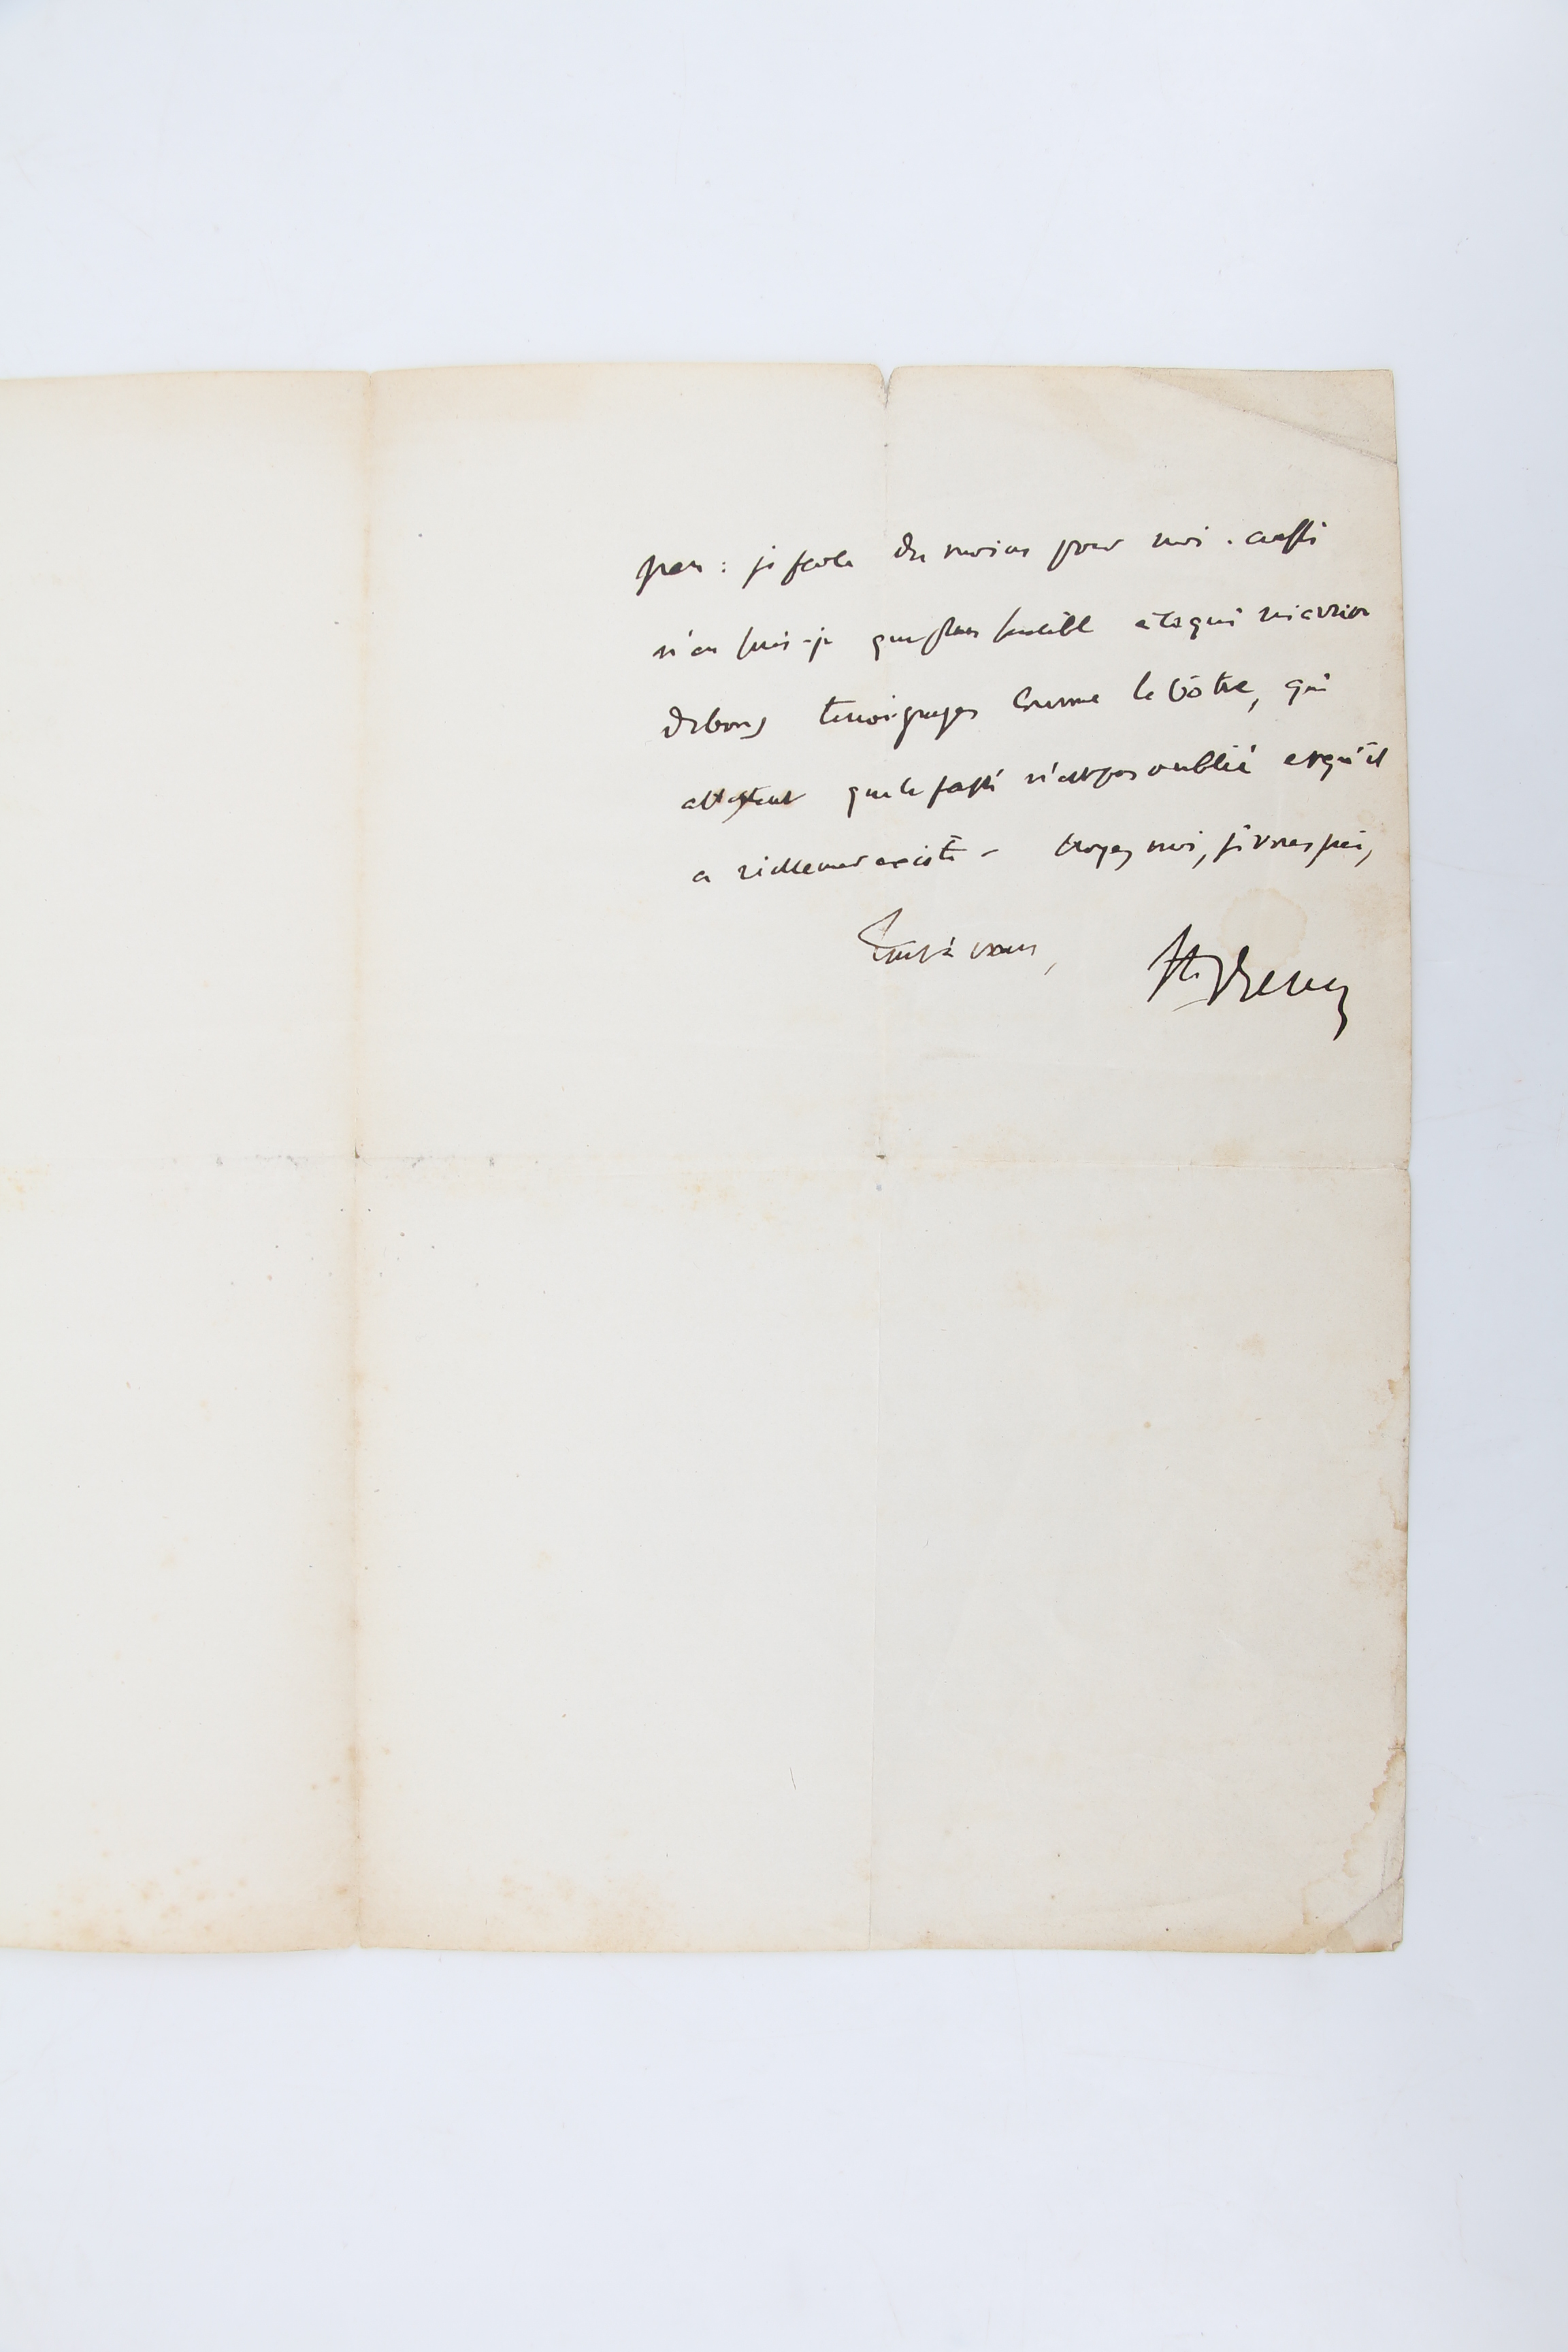 peu : je parle du moins pour moi. aussi
n'en suis-je que plus sensible à ce qui m'arrive
de bons témoignages comme le vôtre, qui
attestent que le passé n'est pas oublié et qu'il
a réellement existé – Croyez moi, je vous prie,
Tout à vous,